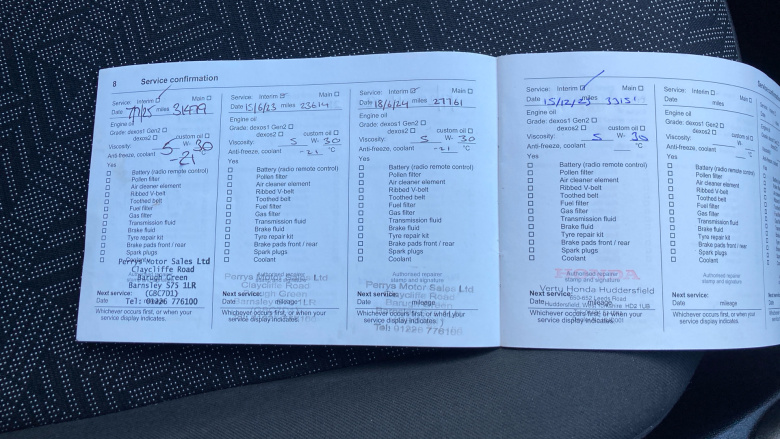 8 Service confirmation
Service: Interim Main
Date 7/7/25 miles 31499
Engine oil
Grade: dexos1 Gen2
dexos2 custom oil
Viscosity: 5 W- 30
Anti-freeze, coolant -21 °C
Yes
Battery (radio remote control)
Pollen filter
Air cleaner element
Ribbed V-belt
Toothed belt
Fuel filter
Gas filter
Transmission fluid
Brake fluid
Tyre repair kit
Brake pads front / rear
Spark plugs
Perrys Motor Sales Ltd
Claycliffe Road
Barugh Green
Barnsley S75 1LR
(GBC7D1)
Next service:
Date Tel: 01226 776100
Whichever occurs first, or when your
service display indicates.
Service: Interim Main
Date 15/6/23 miles 23614
Engine oil
Grade: dexos1 Gen2
dexos2 custom oil
Viscosity: 5 W- 30
Anti-freeze, coolant -21 °C
Yes
Battery (radio remote control)
Pollen filter
Air cleaner element
Ribbed V-belt
Toothed belt
Fuel filter
Gas filter
Transmission fluid
Brake fluid
Tyre repair kit
Brake pads front / rear
Spark plugs
Coolant
Authorised repairer
Perrys Motor Sales Ltd
Claycliffe Road
Barugh Green
Next service:
Date mileage
Whichever occurs first, or when your
service display indicates.
Service: Interim Main
Date 18/6/24 miles 27761
Engine oil
Grade: dexos1 Gen2
dexos2 custom oil
Viscosity: 5 W- 30
Anti-freeze, coolant -21 °C
Yes
Battery (radio remote control)
Pollen filter
Air cleaner element
Ribbed V-belt
Toothed belt
Fuel filter
Gas filter
Transmission fluid
Brake fluid
Tyre repair kit
Brake pads front / rear
Spark plugs
Coolant
Authorised repairer
stamp and signature
Perrys Motor Sales Ltd
Claycliffe Road
Next service:
Date mileage
Whichever occurs first, or when your
service display indicates.
Tel: 01226 776100
Service: Interim Main
Date miles
Engine oil
Grade: dexos1 Gen2
dexos2 custom oil
Viscosity: 5 W- 30
Anti-freeze, coolant °C
Yes
Battery (radio remote control)
Pollen filter
Air cleaner element
Ribbed V-belt
Toothed belt
Fuel filter
Gas filter
Transmission fluid
Brake fluid
Tyre repair kit
Brake pads front / rear
Spark plugs
Coolant
Authorised repairer
stamp and signature
Vertu Honda Huddersfield
Leeds Road
Huddersfield, HD2 1UB
Next service:
Date mileage
Whichever occurs first, or when your
service display indicates.
Service: Interim Main
Date miles
Engine oil
Grade: dexos1 Gen2
dexos2 custom oil
Viscosity: W-
Anti-freeze, coolant °C
Yes
Battery (radio remote control)
Pollen filter
Air cleaner element
Ribbed V-belt
Toothed belt
Fuel filter
Gas filter
Transmission fluid
Brake fluid
Tyre repair kit
Brake pads front / rear
Spark plugs
Coolant
Authorised repairer
stamp and signature
Next service:
Date mileage
Whichever occurs first, or when your
service display indicates.